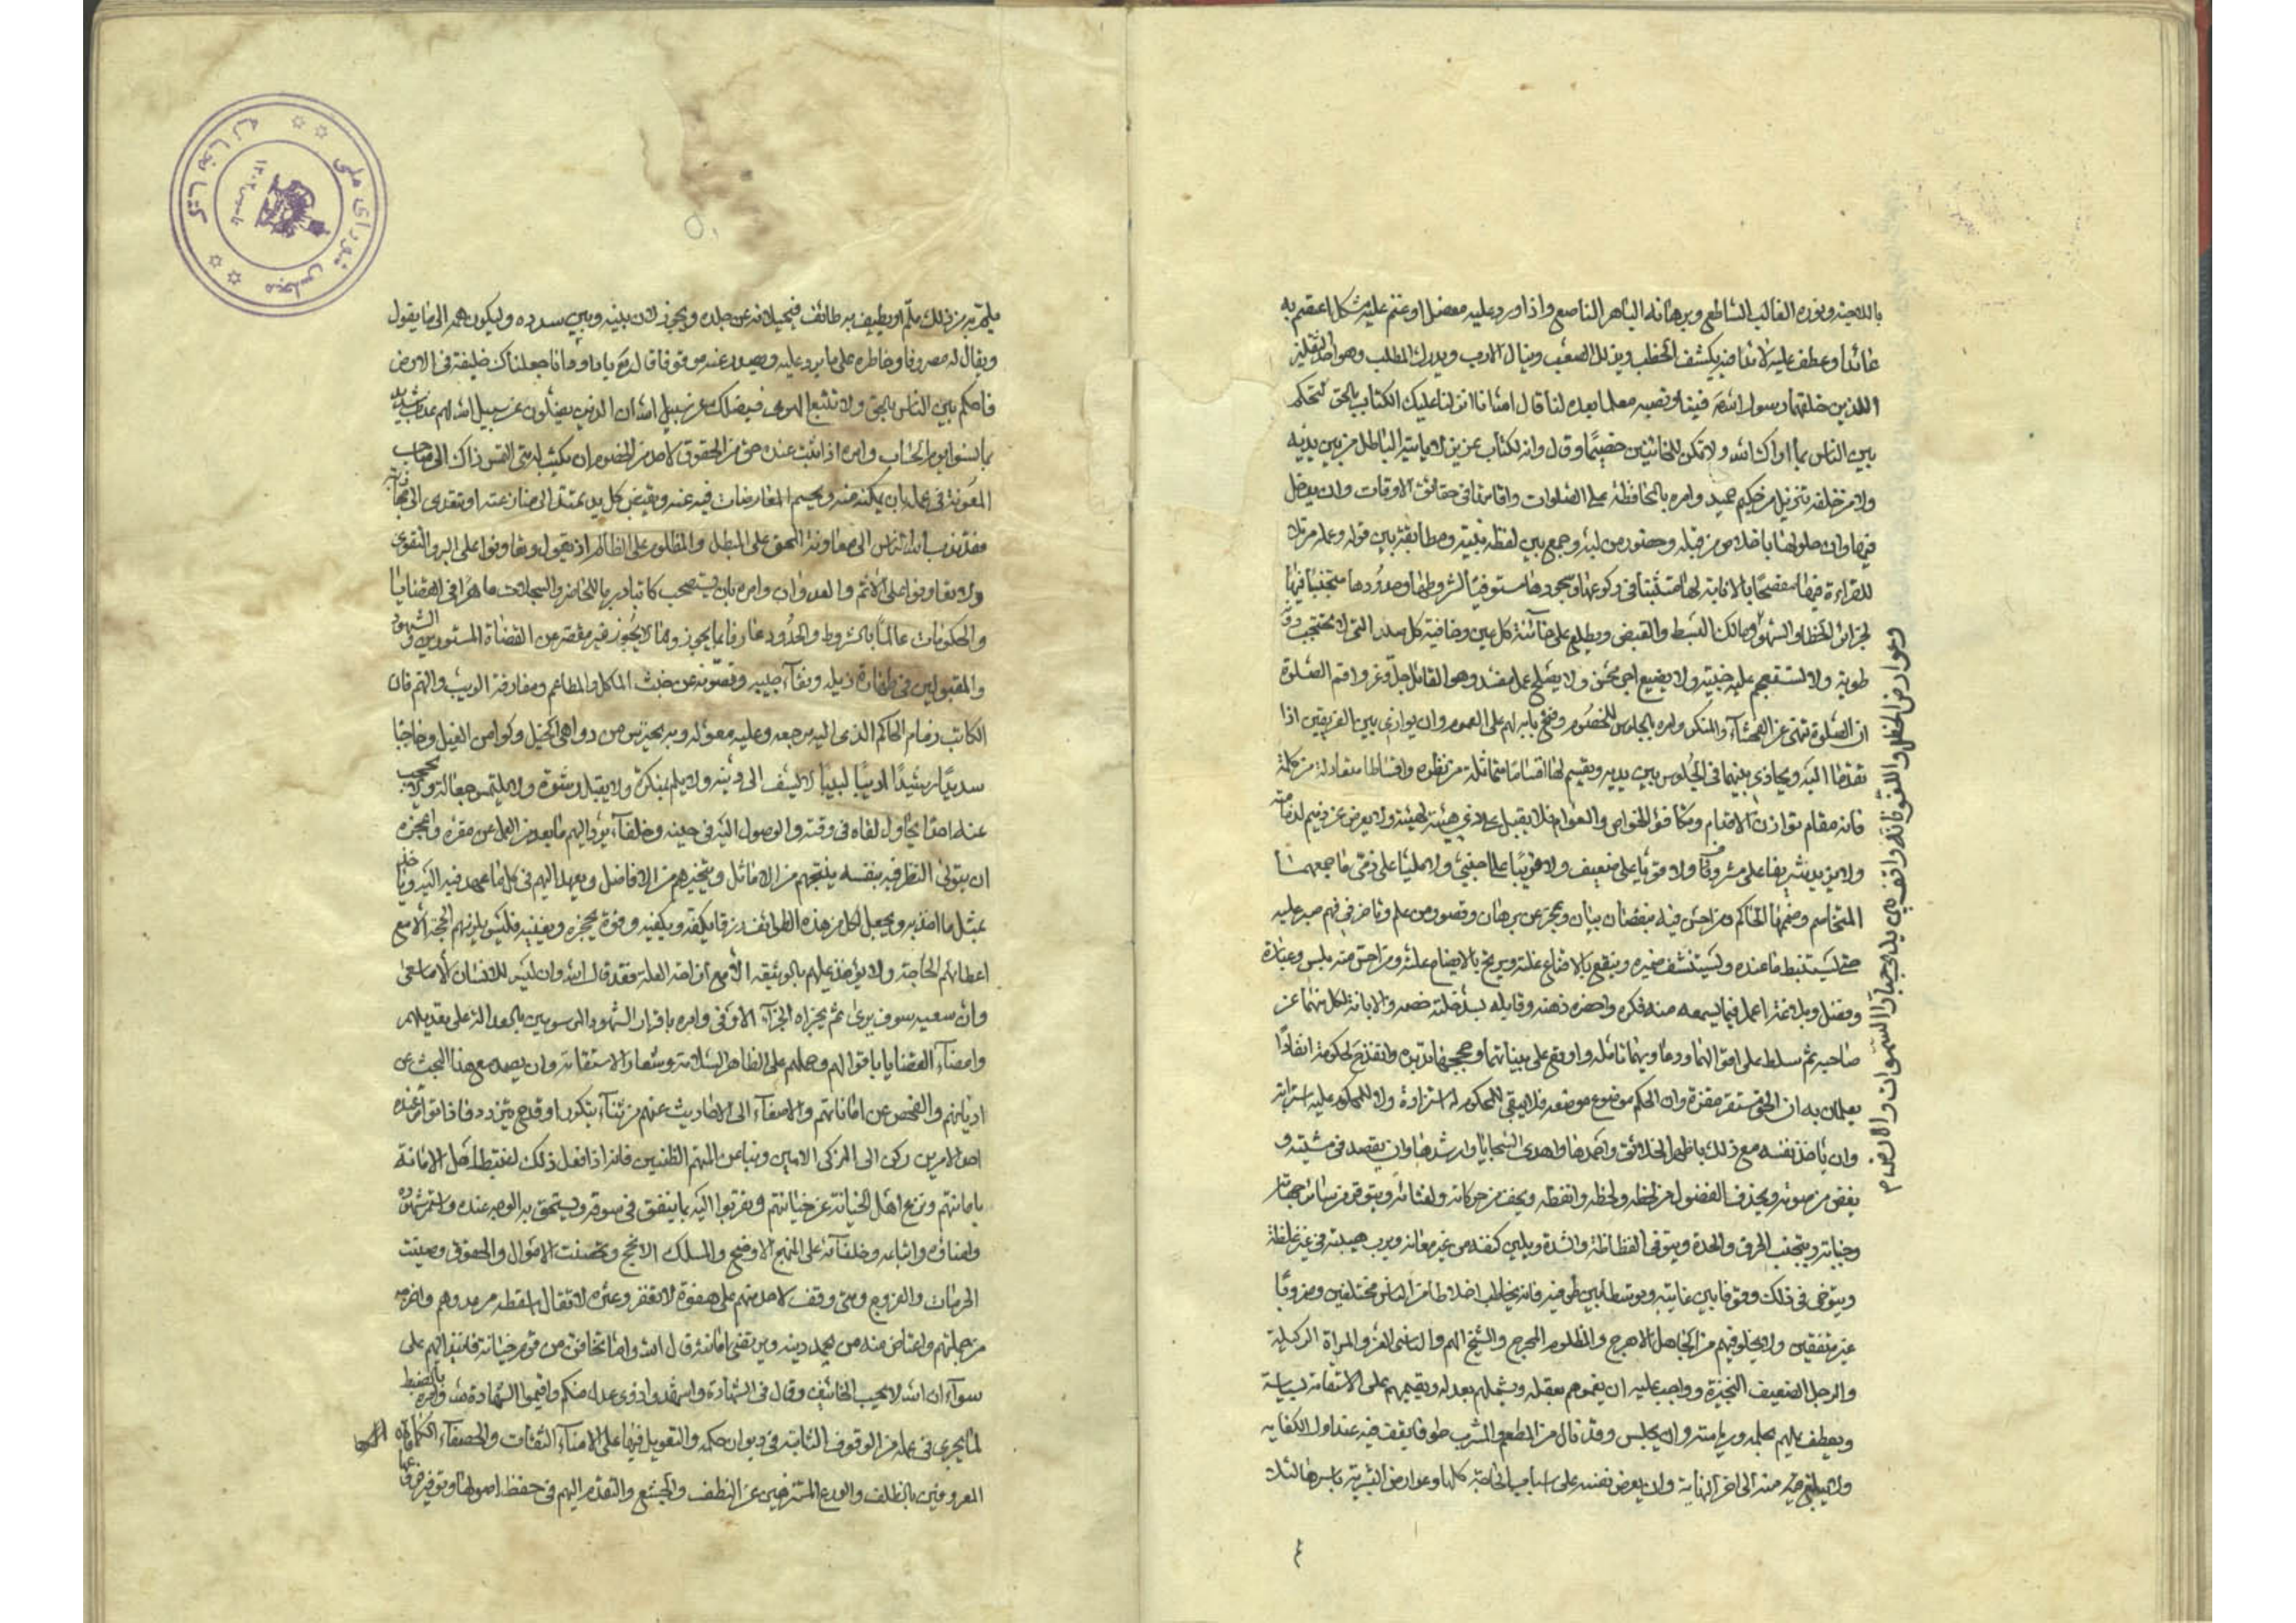 باللاجئه ونوره الغالب الساطع وبرهانه الباهر الناصع واذا ورد عليه معضل او غم عليه مشكل اعتصم به
عائذا وعطف عليه لائذا فبه يكشف الخطب ويذلل الصعب وينال الارب ويدرك المطلب وهو احد الثقلين
اللذين خلفهما رسول الله فينا ونصبه معلما بعده لنا قال الله انا انزلنا عليك الكتاب بالحق لتحكم
بين الناس بما اراك الله ولا تكن للخائنين خصيمًا وقال وانه لكتاب عزيز لا ياتيه الباطل من بين يديه
ولا من خلفه تنزيل من حكيم حميد وامره بالمحافظة على الصلوات واقامتها في حقائق الاوقات وان يدخل
فيها اوان حلولها باخلاص من قبله وحضور من لبه وجمع بين لفظه ونيته ومطابقة بين قوله وعمله مرتلا
للقراءة فيها مفصحًا بالابانة لها متثبتا في ركوعها وسجودها مستوفيًا لشروطها وحدودها متجنبًا فيها
لجرائر الخطا والسهو ومالك البسط والقبض ويطلع على خائنة كل عين وخافية كل صدر التي لا تحتجب دونه
طوية ولا تستعجم عليه خبيئة ولا يضيع اجر محسن ولا يصلح عمل مفسد وهو القائل جل وعز واقم الصلوة
ان الصلوة تنهى عن الفحشاء والمنكر وامره بالجلوس للخصوم وفتح بابه لهم على العموم وان يوازي بين الفريقين اذا
تقدما اليه ويحاذي بينهما في الجلوس بين يديه ويقسم لهما اقسامًا متماثلة من نظره واقساطا متعادلة من كلمة
فانه مقام توازن الاقدام وتكافؤ الخواص والعوام فلا يقبل على ذي هيئة لهيئته ولا يعرض عن دميم لدمامته
ولا يزيد شريفا على مشروف ولا قويًا على ضعيف ولا قريبًا على اجنبي ولا مليًا على ذمي ما جمعهما
التخاصم وضمهما التحاكم ومن احس فيه بنقصان بيان وعجز عن برهان وقصور من علم وتاخر في فهم صبر عليه
حتى يستنبط ما عنده ويستشف ضميره وينقع بالاقناع غلته ويزيح بالايضاح علته ومن احس منه بلسن وعبارة
وفضل وبلاغة اعمل فيما يسمعه منه فكره واحضره ذهنه وقابله بسد خلة خصمه والابانة لكل منهما عن
صاحبه ثم سلط على اقوالهما ودعاويهما تامله واوقع على بيناتهما وحججهما تدبره وانفذ حكومة انفاذًا
يعلمان به ان الحق مستقر مقره وان الحكم موضوع موضعه فلا يبقى للمحكوم له استزادة ولا للمحكوم عليه استرابة
وان ياخذ نفسه مع ذلك باطهر الخلائق واحمدها واهدى السجايا وارشدها وان يقصد في مشيته و
يغض من صوته ويحذف الفضول من لفظه ولحظه ويخفف من حركاته ولفتاته ويتوقر من سائر جهاته
وجنباته ويتجنب الخرق والحدة ويتوقى الفظاظة والشدة ويلين كنفه من غير مهانة ويرب هيبته في غير غلظة
ويتوخى في ذلك وقوفا بين غايتيه وتوسطا بين طرفيه فانه يخاطب اخلاطا من الناس مختلفين وضروبًا
غير متفقين ولا يخلو فيهم من الجاهل الاهوج والمظلوم المحرج والشيخ الهم والناشئ الغر والمراة الركيكة
والرجل الضعيف النحيزة وواجب عليه ان يغمرهم بعقله ويشملهم بعدله ويقيمهم على الاستقامة بسياسة
ويعطف عليهم بحلمه ورياسته وان يجلس وقد نال من المطعم والمشرب طرفا يقف فيه عند اول الكفاية
ولا يبلغ منه الى اخر النهاية وان يعرض نفسه على اسباب الحاجة كلها وعوارض البشرية باسرها لئلا
وعوارض الخطل واللغو فانه واقف بين يدي جبار السموات والارض
يلم به من ذلك ملم او يطيف به طائف فيحيلانه عن جلده ويحولان بينه وبين سدده وليكون همه الى ما يقول
ويقال له مصروفا وخاطره على ما يرد عليه ويصدر عنه موقوفا قال الله تع يا داود انا جعلناك خليفة في الارض
فاحكم بين الناس بالحق ولا تتبع الهوى فيضلك عن سبيل الله ان الذين يضلون عن سبيل الله لهم عذاب شديد
بما نسوا يوم الحساب وامره اذا ثبت عنده حق من الحقوق لاحد من الخصوم ان يكتب له متى التمس ذاك الى صاحب
المعونة في عمله بان يمكنه منه ويحسم المعارضات فيه عنه ويقبض كل يد تمتد الى منازعته او تتعدى الى مجاذبته
فقد ندب الله الناس الى معاونة المحق على المبطل والمظلوم على الظالم اذ يقول وتعاونوا على البر والتقوى
ولا تعاونوا على الاثم والعدوان وامره بان يستصحب كاتبا دربا بالمحاضر والسجلات ماهرًا في القضايا
والحكومات عالمًا بالشروط والحدود عارفا بما يجوز وما لا يجوز غير مقصر عن القضاة المستورين والشهود
والمقبولين في طهارة ذيله ونقاء جيبه وتصونه عن خبث الماكل والمطاعم ومقارفة الريب والتهم فان
الكاتب زمام الحاكم الذي اليه مرجعه وعليه معوله وبه يحترس من دواهي الحيل وكوامن الغيل وحاجبا
سديدًا رشيدًا اديبًا لبيبًا لا يسف الى دنية ولا يلم بمنكرة ولا يقبل رشوة ولا يلتمس جعالة ولا يحجب
عنه احدًا يحاول لقاه في وقته والوصول اليه في حينه وخلفاء يرد اليهم ما بعد من العمل عن مقره واعجزه
ان يتولى النظر فيه بنفسه ينتخبهم من الاماثل ويتخيرهم من الافاضل ويعهد اليهم في كل ما عهد فيه اليه وياخذهم
بمثل ما اخذ به ويجعل لكل من هذه الطوائف رزقا يكفه ويكفيه وقوة تحجزه وتغنيه فليس يلزمهم الحجة الا مع
اعطائهم الحاجة ولا يؤخذ عليهم بالوثيقة الا مع ازاحة العلة فقد قال الله وان ليس للانسان الا ما سعى
وان سعيه سوف يرى ثم يجزاه الجزاء الاوفى وامره باقرار الشهود الموسومين بالعدالة على تعديلهم
وامضاء القضايا باقوالهم وحملهم على الظاهر السلامة وشعار الاستقامة وان يصمد مع هذا البحث عن
اديانهم والفحص عن اماناتهم والاصغاء الى الاحاديث عنهم من ثناء يتكرر او قدح يتردد فاذا تواتر عنده
احد الامرين ركن الى المزكى الامين ونبا عن المتهم الظنين فانه اذا فعل ذلك اغتبط اهل الامانة
باماناتهم ونزع اهل الخيانة عن خياناتهم وتقربوا اليه بما ينفق في سوقه ويستحق به الوجه عنده واستمر شهوده
وامناؤه واتباعه وخلفاؤه على المنهج الاوضح والمسلك الانجح وتحصنت الاموال والحقوق وصينت
الحرمات والفروج ومتى وقف لاحد منهم على هفوة لا تغفر وعثرة لا تقال اسقطه من عددهم واخرجه
من جملتهم واعتاض منه من يحمد دينه ويرتضي امانته قال الله واما تخافن من قوم خيانة فانبذ اليهم على
سواء ان الله لا يحب الخائنين وقال في الشهادة واشهدوا ذوي عدل منكم واقيموا الشهادة لله وامره بالضبط
لما يجري في عمله من الوقوف الثابتة في ديوان حكمه والتعويل فيها على الامناء الثقات والحصفاء الكفاة
المعروفين بالظلف والورع المتنزهين عن النطف والجشع والتقدم اليهم في حفظ اصولها وتوفير فروعها
كتابخانه
مجلس شورای ملی